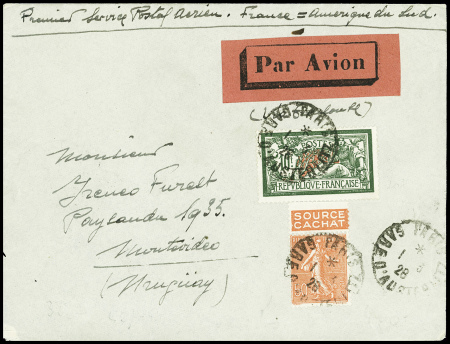 Premier Service Postal Aérien. France = Amérique du Sud.
Par Avion
Monsieur
Ireneo Furest
Paysandu 1935.
Montevideo
(Uruguay)
POSTES
REPUBLIQUE FRANÇAISE
SOURCE
CACHAT
PARIS GARE D'AUSTERLITZ
28